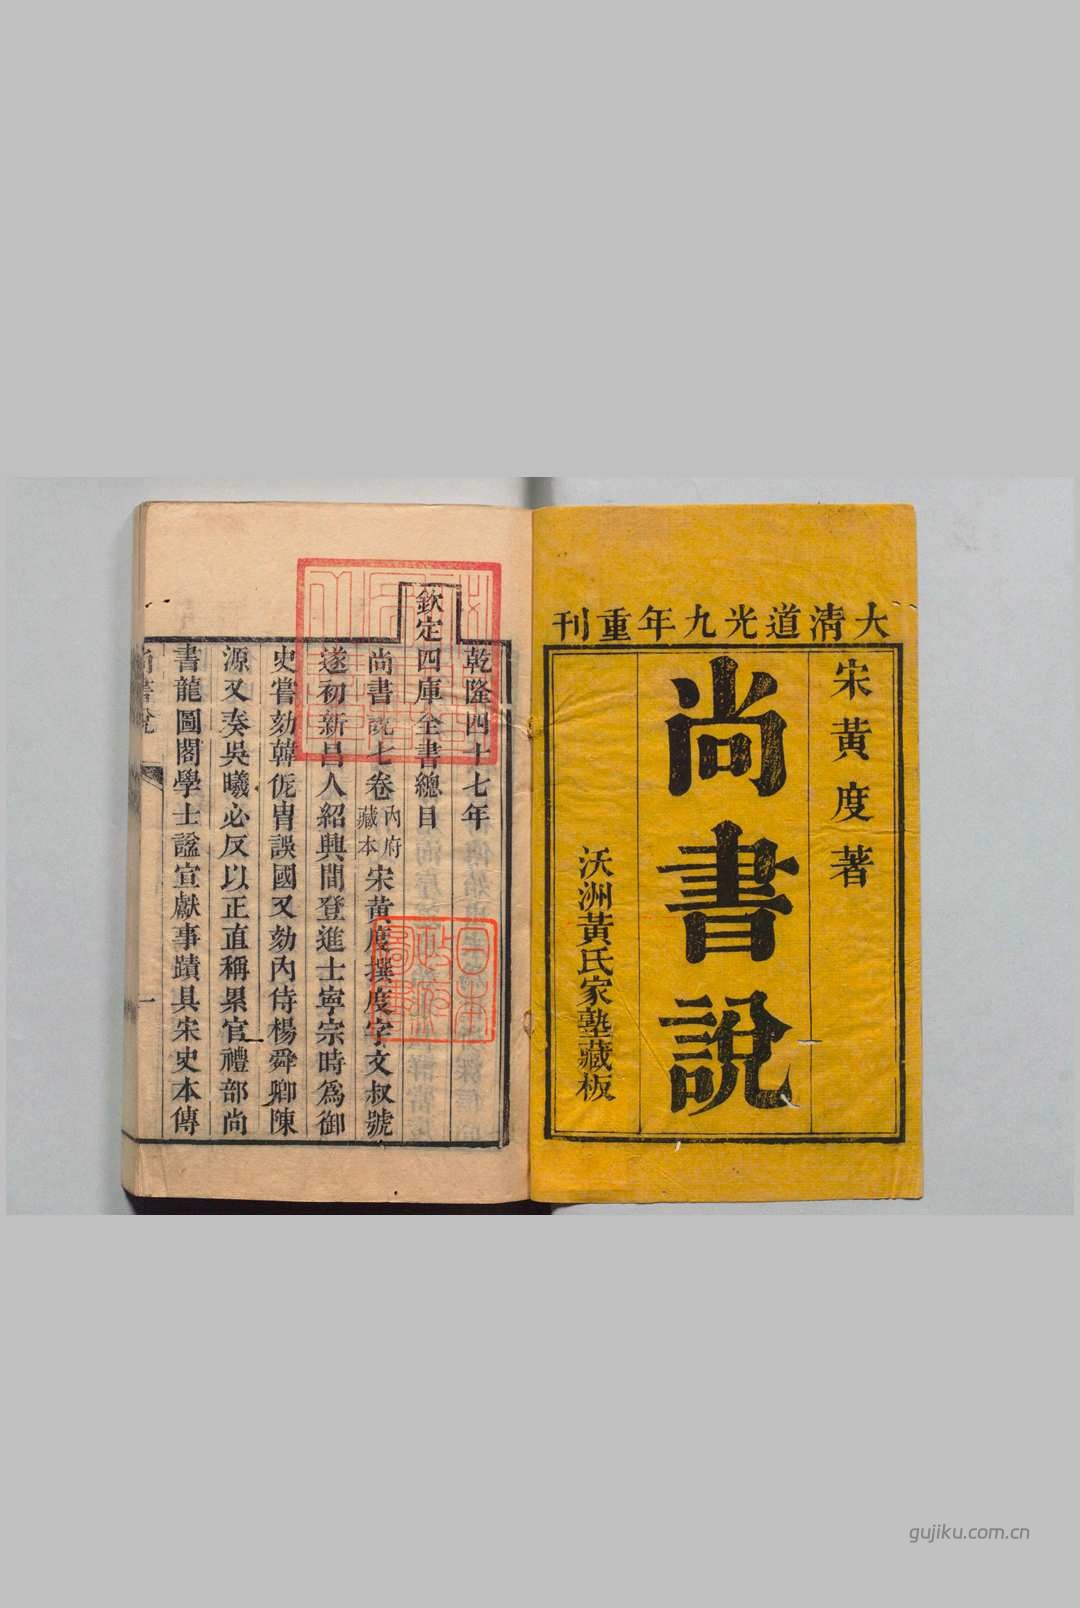 大清道光九年重刊
宋黄度著
尚書說
沃洲黃氏家塾藏板
乾隆四十七年
欽定四庫全書總目
尚書說七卷內府藏本宋黃度撰度字文叔號
遂初新昌人紹興間登進士寧宗時爲御
史嘗劾韓侂冑誤國又劾內侍楊舜卿陳
源又奏吳曦必反以正直稱累官禮部尚
書龍圖閣學士諡宣獻事蹟具宋史本傳
尚書說
一
gujiku.com.cn